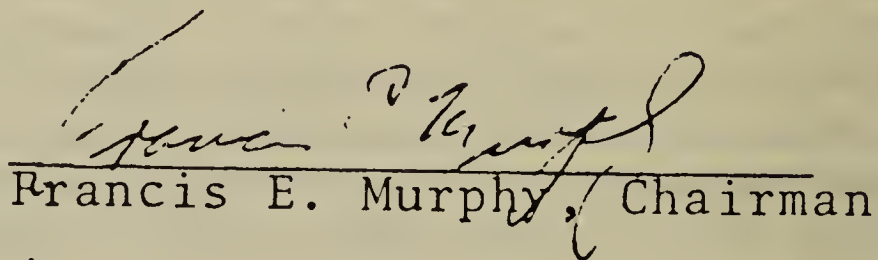 Francis E. Murphy
Francis E. Murphy, Chairman